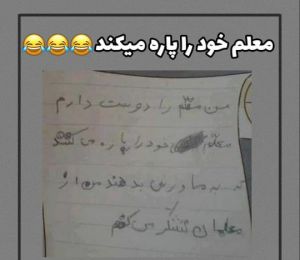 معلم خود را پاره میکند 😂😂😂
من معلم را دوست دارم
معلم خود را پاره می کند
به ما ورزش بدهند من از
معلمان تشکر می کنم